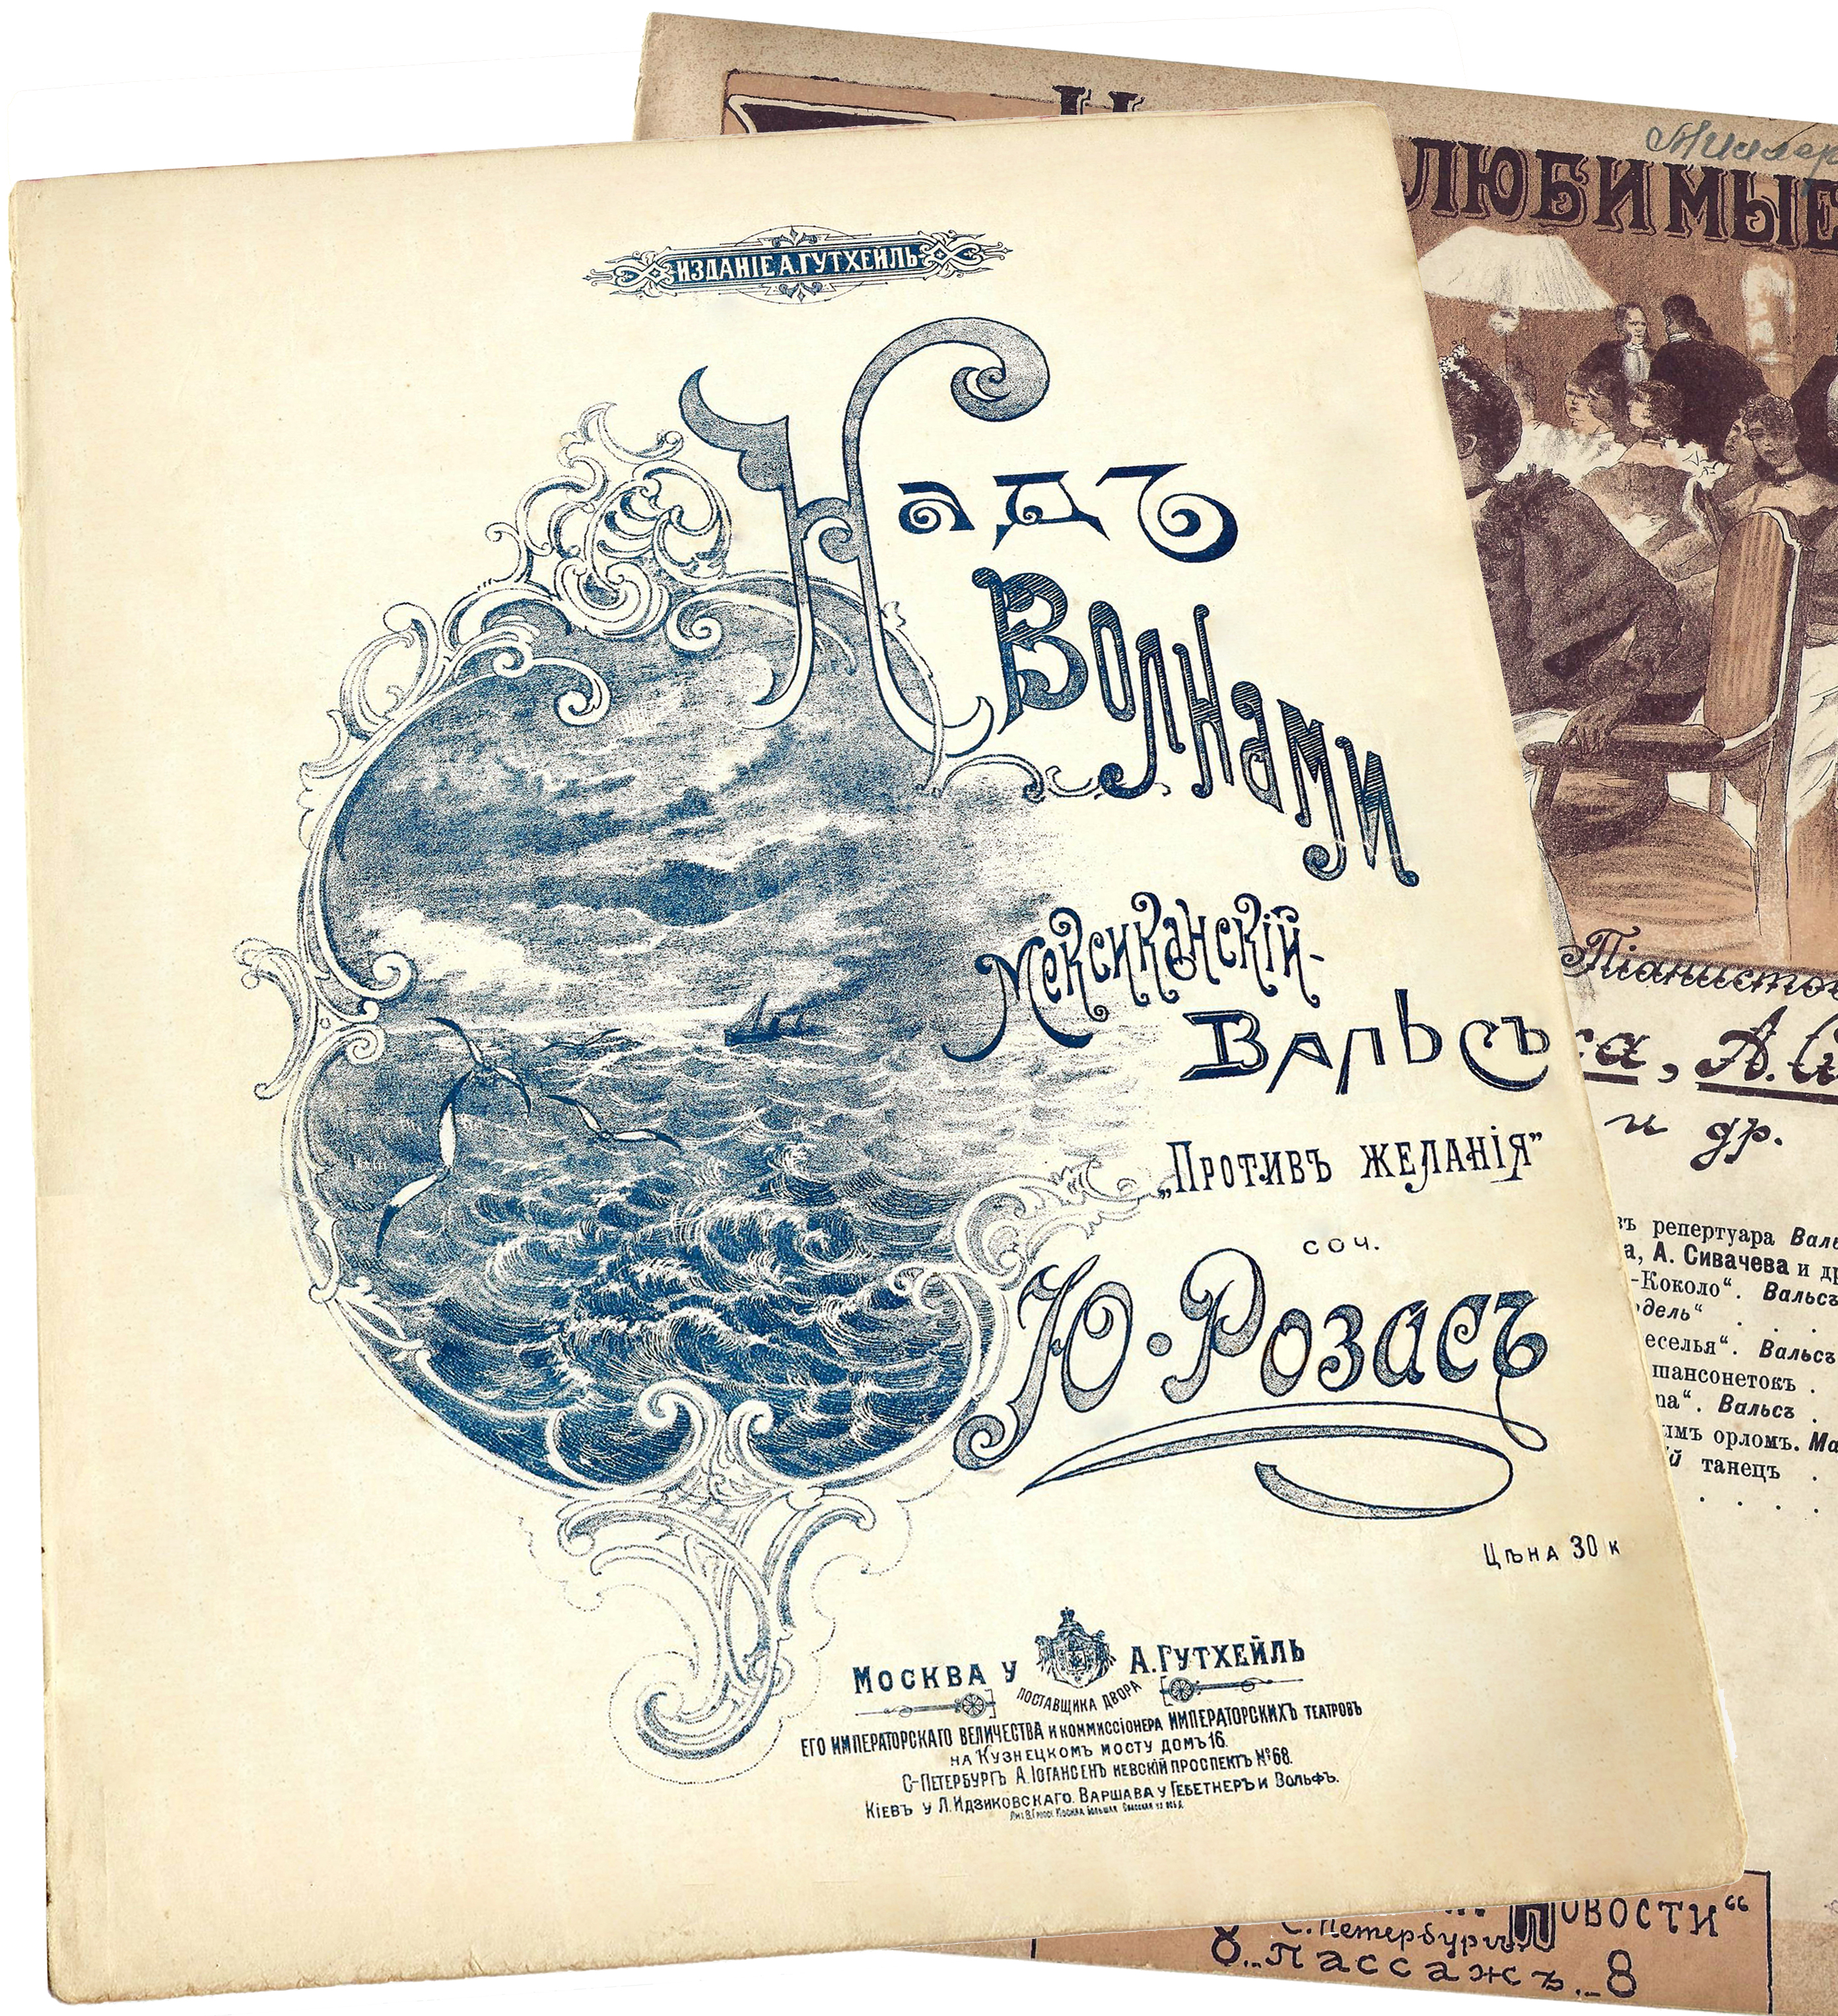 ИЗДАНІЕ А. ГУТХЕЙЛЬ
Надъ
Волнами
Мексиканскій-
Вальсъ
„Противъ желанія”
соч.
Ю. Розасъ
Цѣна 30 к
Москва у А. Гутхейль
поставщика двора
его императорскаго величества и коммиссіонера императорскихъ театровъ
на Кузнецкомъ мосту домъ 16.
С-Петербургъ А. Іогансенъ Невскій проспектъ № 68.
Кіевъ у Л. Идзиковскаго. Варшава у Гебетнеръ и Вольфъ.
ЛЮБИМЫЕ
Піанистов
А. С
и др.
репертуара Валь
а, А. Сивачева и др
-Коколо“. Вальсъ
одель“ . . .
еселья“. Вальсъ
шансонетокъ .
па“. Вальсъ .
ымъ орломъ. Ма
й танецъ .
Новости“
С. Петербургъ
8.. Пассажъ.. 8